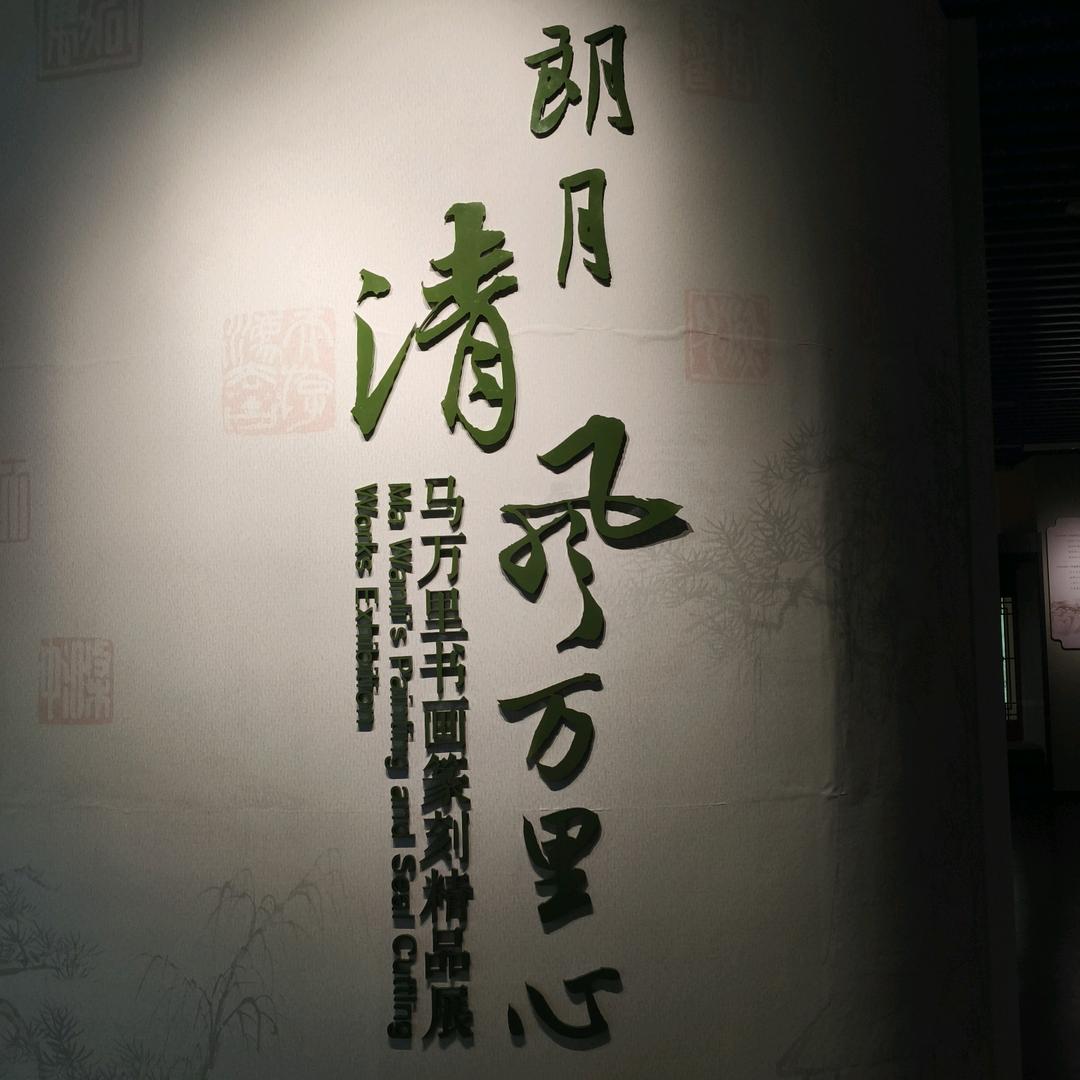 朗月清风万里心
马万里书画篆刻精品展
Ma Wanli's Painting and Seal Cutting
Works Exhibition